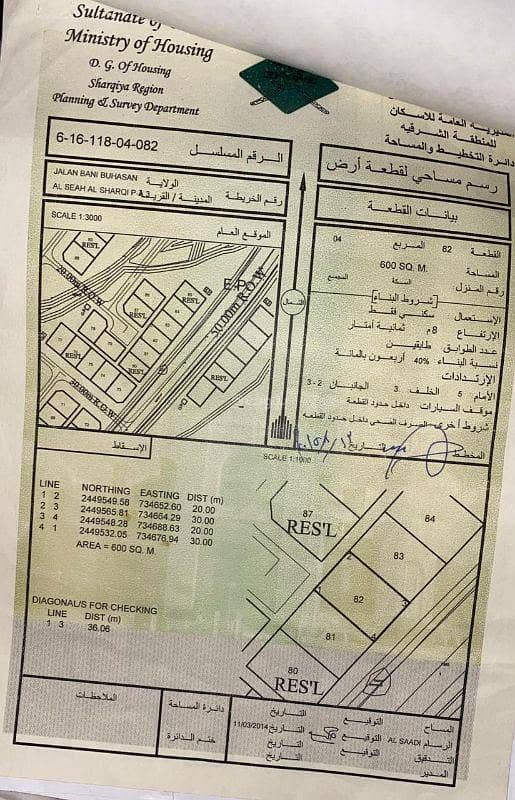 Sultanate of
Ministry of Housing
D. G. Of Housing
Sharqiya Region
Planning & Survey Department
المديرية العامة للاسكان
للمنطقة الشرقيه
دائرة التخطيط والمساحة
6-16-118-04-082 الرقم المسلسل
رسم مساحي لقطعة أرض
JALAN BANI BUHASAN الولاية
AL SEAH AL SHARQI P-2 المدينة / القرية
رقم الخريطة
بيانات القطعة
SCALE 1:3000
الموقع العام
القطعة 82 المربع 04
المساحة 600 SQ. M.
رقم المنزل السكة المجمع
شروط البناء
الإستعمال سكني فقط
الإرتفاع 8م ثمانية أمتار
عدد الطوابق طابقين
نسبة البناء 40% أربعون بالمائة
الإرتدادات
الأمام 5 الخلف 3 الجانبان 3-2
موقف السيارات داخل حدود القطعة
شروط أخرى الصرف الصحي داخل حدود القطعة
المخطط التاريخ
20.00m R.O.W
50.00m R.O.W
20.00m R.O.W
RES'L
RES'L
RES'L
RES'L
RES'L
RES'L
الشمال
الإسقاط
SCALE 1:1000
LINE NORTHING EASTING DIST (m)
1 2 2449549.58 734652.60 20.00
2 3 2449565.81 734664.29 30.00
3 4 2449548.28 734688.63 20.00
4 1 2449532.05 734676.94 30.00
AREA = 600 SQ. M.
DIAGONAL/S FOR CHECKING
LINE DIST (m)
1 3 36.06
87
RES'L
84
83
82
81
80
RES'L
2
3
4
الملاحظات
دائرة المساحة
ختم الدائرة
المساح التوقيع التاريخ
الرسام AL SAADI التوقيع التاريخ 11/03/2014
التدقيق التوقيع التاريخ
المدير التاريخ